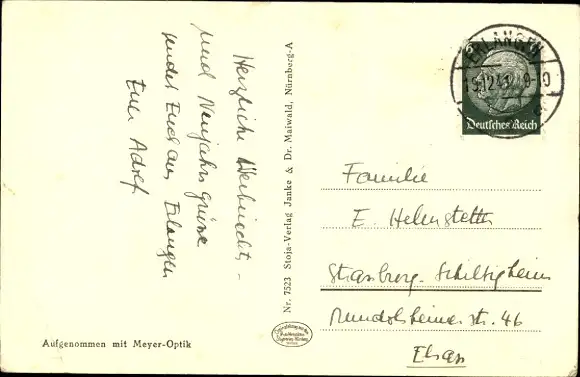 Herzliche Weihnachts-
und Neujahrsgrüsse
sendet Euch aus Erlangen
Euer
Aufgenommen mit Meyer-Optik
Nr. 7523 Stoja-Verlag Janke & Dr. Maiwald, Nürnberg-A
ERLANGEN
6
Deutsches Reich
Familie
E. Helmstetter
Strasburg-Schiltigheim
str. 46
Elsass